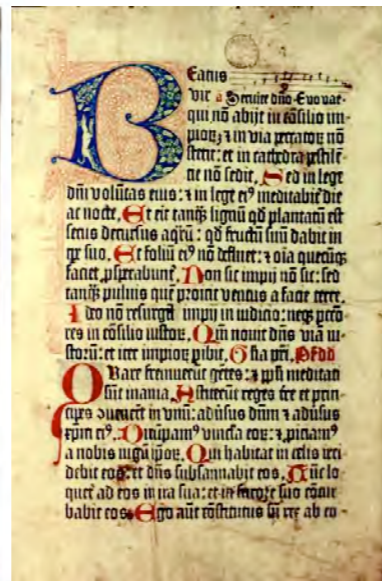 Beatus
vir a Servite dño. Evovae.
qui nō abijt in cōsilio im-
pioꝝ ⁊ in via peccatoꝝ nō
stetit: et in cathedra pestilē-
tie nō sedit, Sed in lege
dñi volūtas eius: ⁊ in lege ei⁹ meditabit̄ die
ac nocte, Et erit tanq̄ lignū qd̄ plantatū est
secus decursus aqrū: qd̄ fructū suū dabit in
tp̄e suo, Et foliū ei⁹ nō defluet: ⁊ oīa quecūq̄
faciet, ꝓsperabunt̄, Non sic impij nō sic: sed
tanq̄ pulvis quē proicit ventus a facie terre,
Ideo nō resurgūt impij in iudicio: neq̄ pctō-
res in cōsilio iustoꝝ, Qm̄ novit dñs viā iu-
storū: et iter impioꝝ ꝑibit, Głia pr̄i,
Quare fremuerūt gētes: ⁊ ppl̄i meditati
sūt inania, Astiterūt reges tr̄e et prin-
cipes ꝯvenerūt in vnū: adūsus dñm ⁊ adūsus
xp̄m ei⁹, Dirūpam⁹ vincla eoꝝ: ⁊ ꝓiciam⁹
a nobis iugū ip̄oꝝ, Qui habitat in celis irri
debit eos: et dñs subsannabit eos, Tūc lo
quet̄ ad eos in ira sua: et in furore suo cōtur
babit eos, Ego aūt cōstitutus sū rex ab eo-